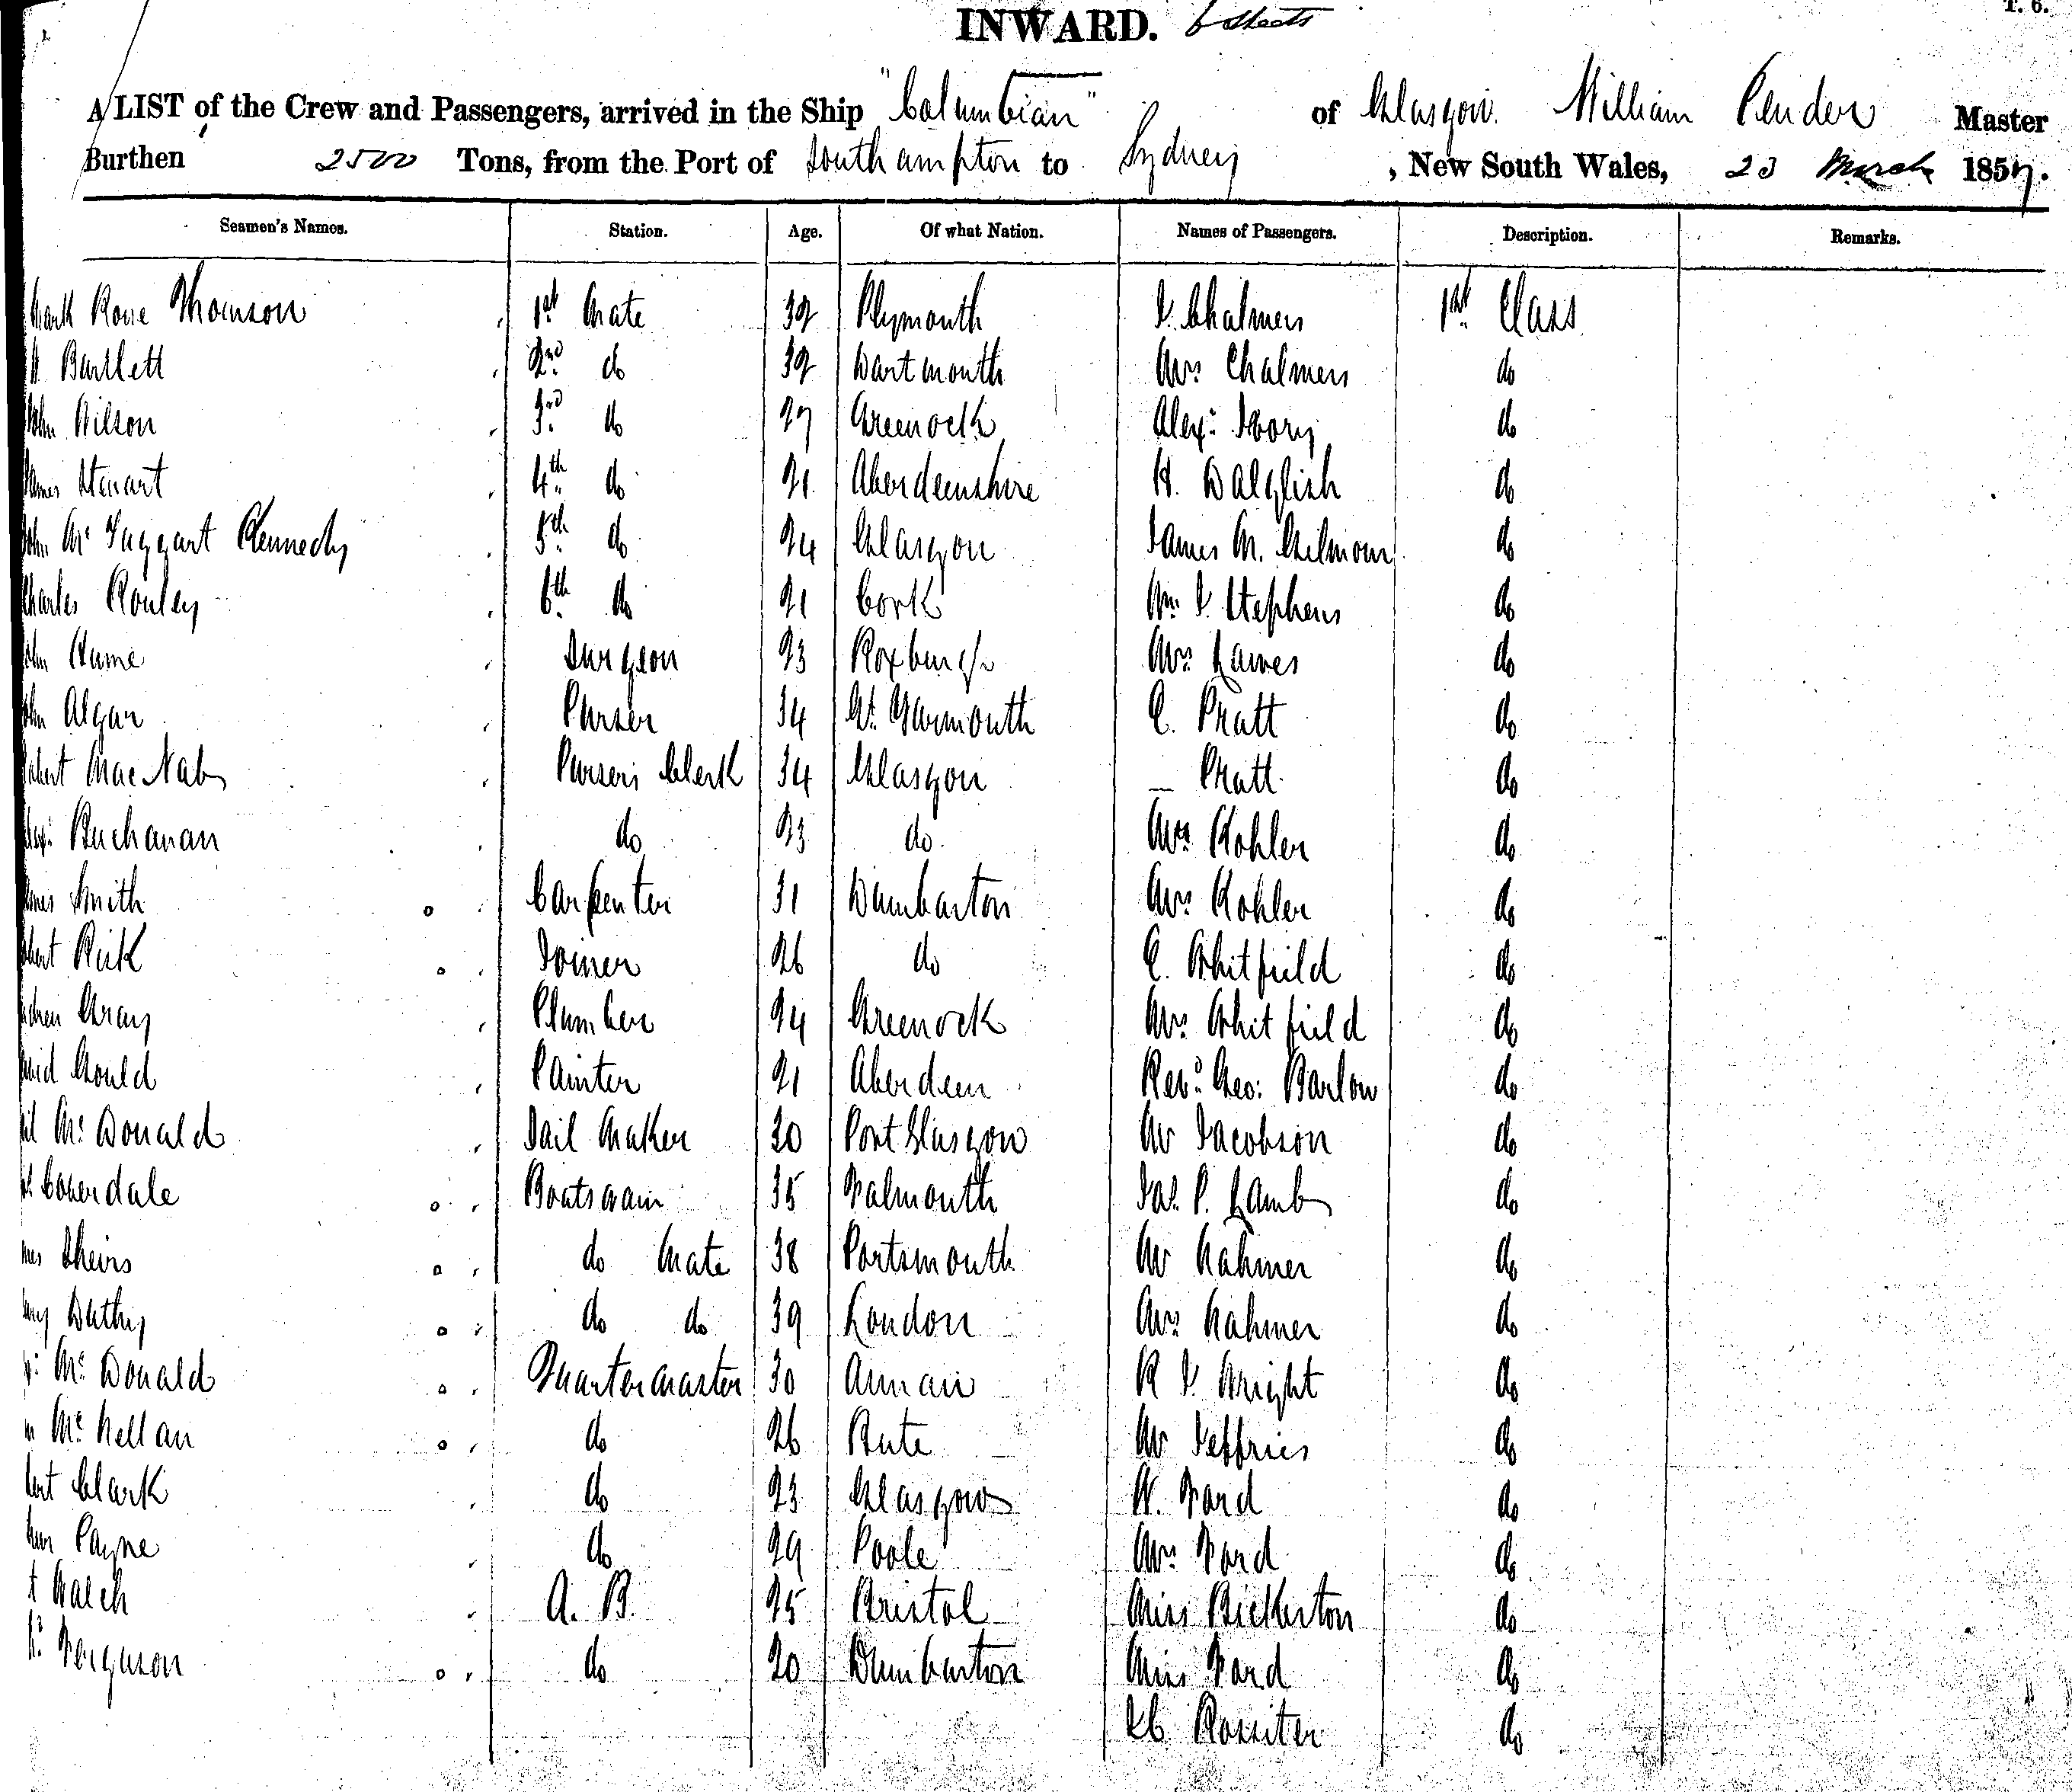 T. 6.
INWARD. 6 sheets
A LIST of the Crew and Passengers, arrived in the Ship "Columbian" of Glasgow. William Pender Master
Burthen 2500 Tons, from the Port of Southampton to Sydney, New South Wales, 23 March 1857.
Seamen's Names. Station. Age. Of what Nation. Names of Passengers. Description. Remarks.
Rowe Thomson 1st Mate 32 Plymouth J. Chalmers 1st Class
Bartlett 2nd do 32 Dartmouth Mrs Chalmers do
John Wilson 3rd do 27 Greenock Alexr Ivory do
James Stewart 4th do 21 Aberdeenshire H. Dalglish do
John Mc Taggart Kennedy 5th do 24 Glasgow James M. Gilmour do
Charles Rowley 6th do 21 Cork Wm J. Stephens do
John Hume Surgeon 23 Roxburgh Mrs Lawes do
John Algar Purser 34 Gt. Yarmouth C. Pratt do
Robert MacNab Pursers Clerk 34 Glasgow — Pratt do
Alexr Buchanan do 23 do Mrs Kohler do
James Smith Carpenter 31 Dumbarton Mrs Kohler do
Robert Joiner 26 do C. Whitfield do
Andrew Gray Plumber 24 Greenock Mrs Whitfield do
David Gould Painter 21 Aberdeen Revd Geo: Barlow do
Mc Donald Sail Maker 20 Port Glasgow Mr Jacobson do
Coverdale Boatswain 35 Falmouth Jas. P. Lamb do
do Mate 38 Portsmouth Mr Rahmer do
do do 39 London Mrs Rahmer do
Mc Donald Quartermaster 30 Annan R J. Wright do
Mc Kellan do 26 Bute Mr Jeffries do
Clark do 23 Glasgow W. Ford do
Payne do 29 Poole Mrs Ford do
Walch A. B. 25 Bristol Miss Bickerton do
Ferguson do 20 Dumbarton Miss Ford do
Rossiter do